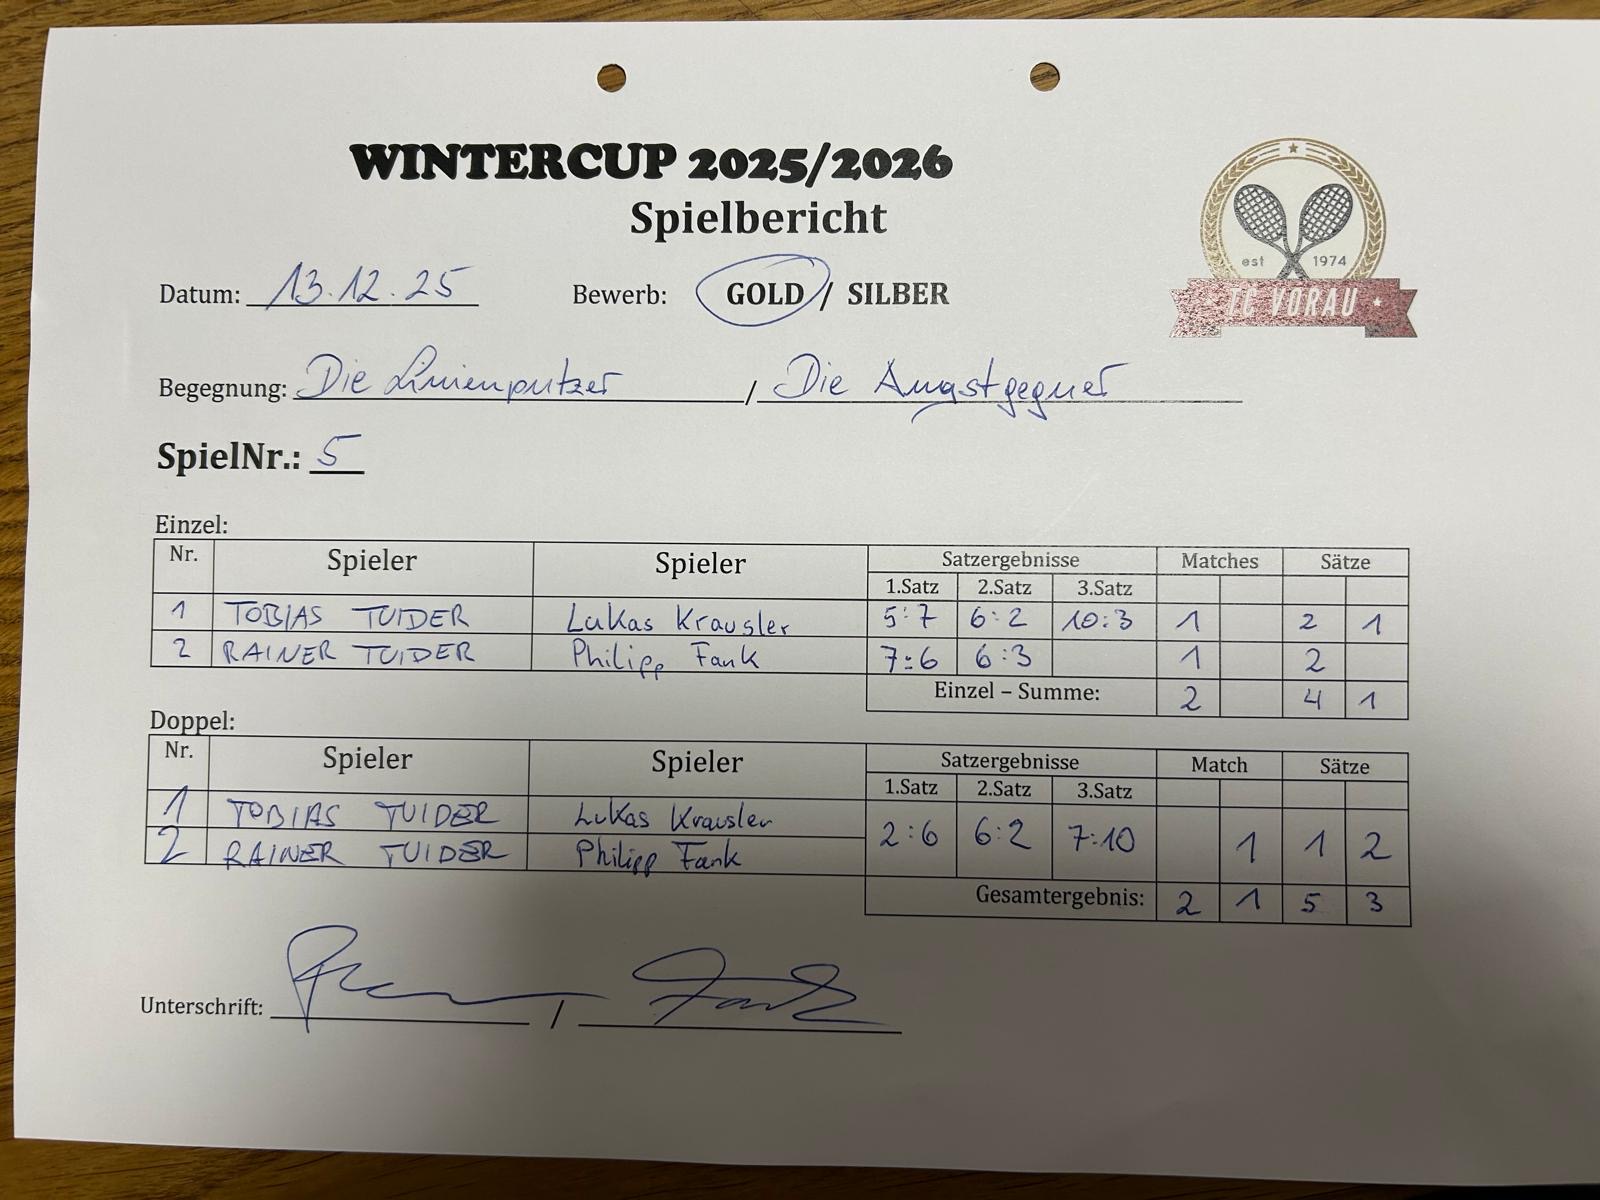 WINTERCUP 2025/2026
Spielbericht
est 1974
TC VORAU
Datum: 13.12.25 Bewerb: GOLD / SILBER
Begegnung: Die Linienputzer / Die Angstgegner
SpielNr.: 5
Einzel:
Nr. Spieler Spieler Satzergebnisse Matches Sätze
1.Satz 2.Satz 3.Satz
1 TOBIAS TUIDER Lukas Krausler 5:7 6:2 10:3 1 2 1
2 RAINER TUIDER Philipp Fank 7:6 6:3 1 2
Einzel – Summe: 2 4 1
Doppel:
Nr. Spieler Spieler Satzergebnisse Match Sätze
1.Satz 2.Satz 3.Satz
1 TOBIAS TUIDER Lukas Krausler
2:6 6:2 7:10 1 1 2
2 RAINER TUIDER Philipp Fank
Gesamtergebnis: 2 1 5 3
Unterschrift: / Fank